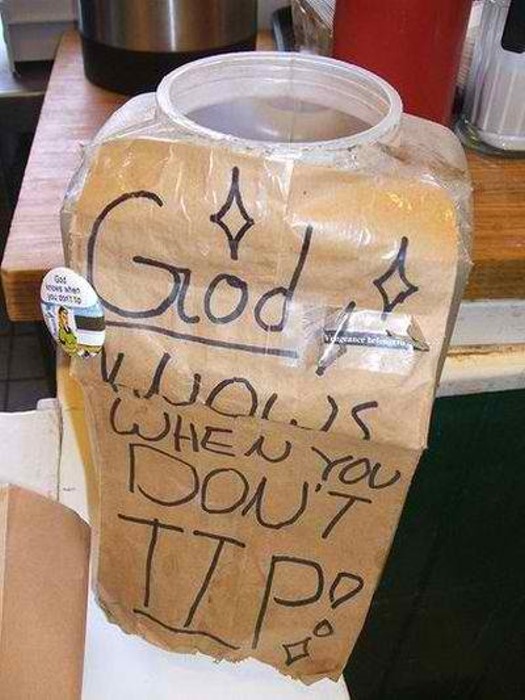 God
KNOWS
WHEN YOU
DON'T
TIP!
God
knows when
you don't tip
Vengeance belongs